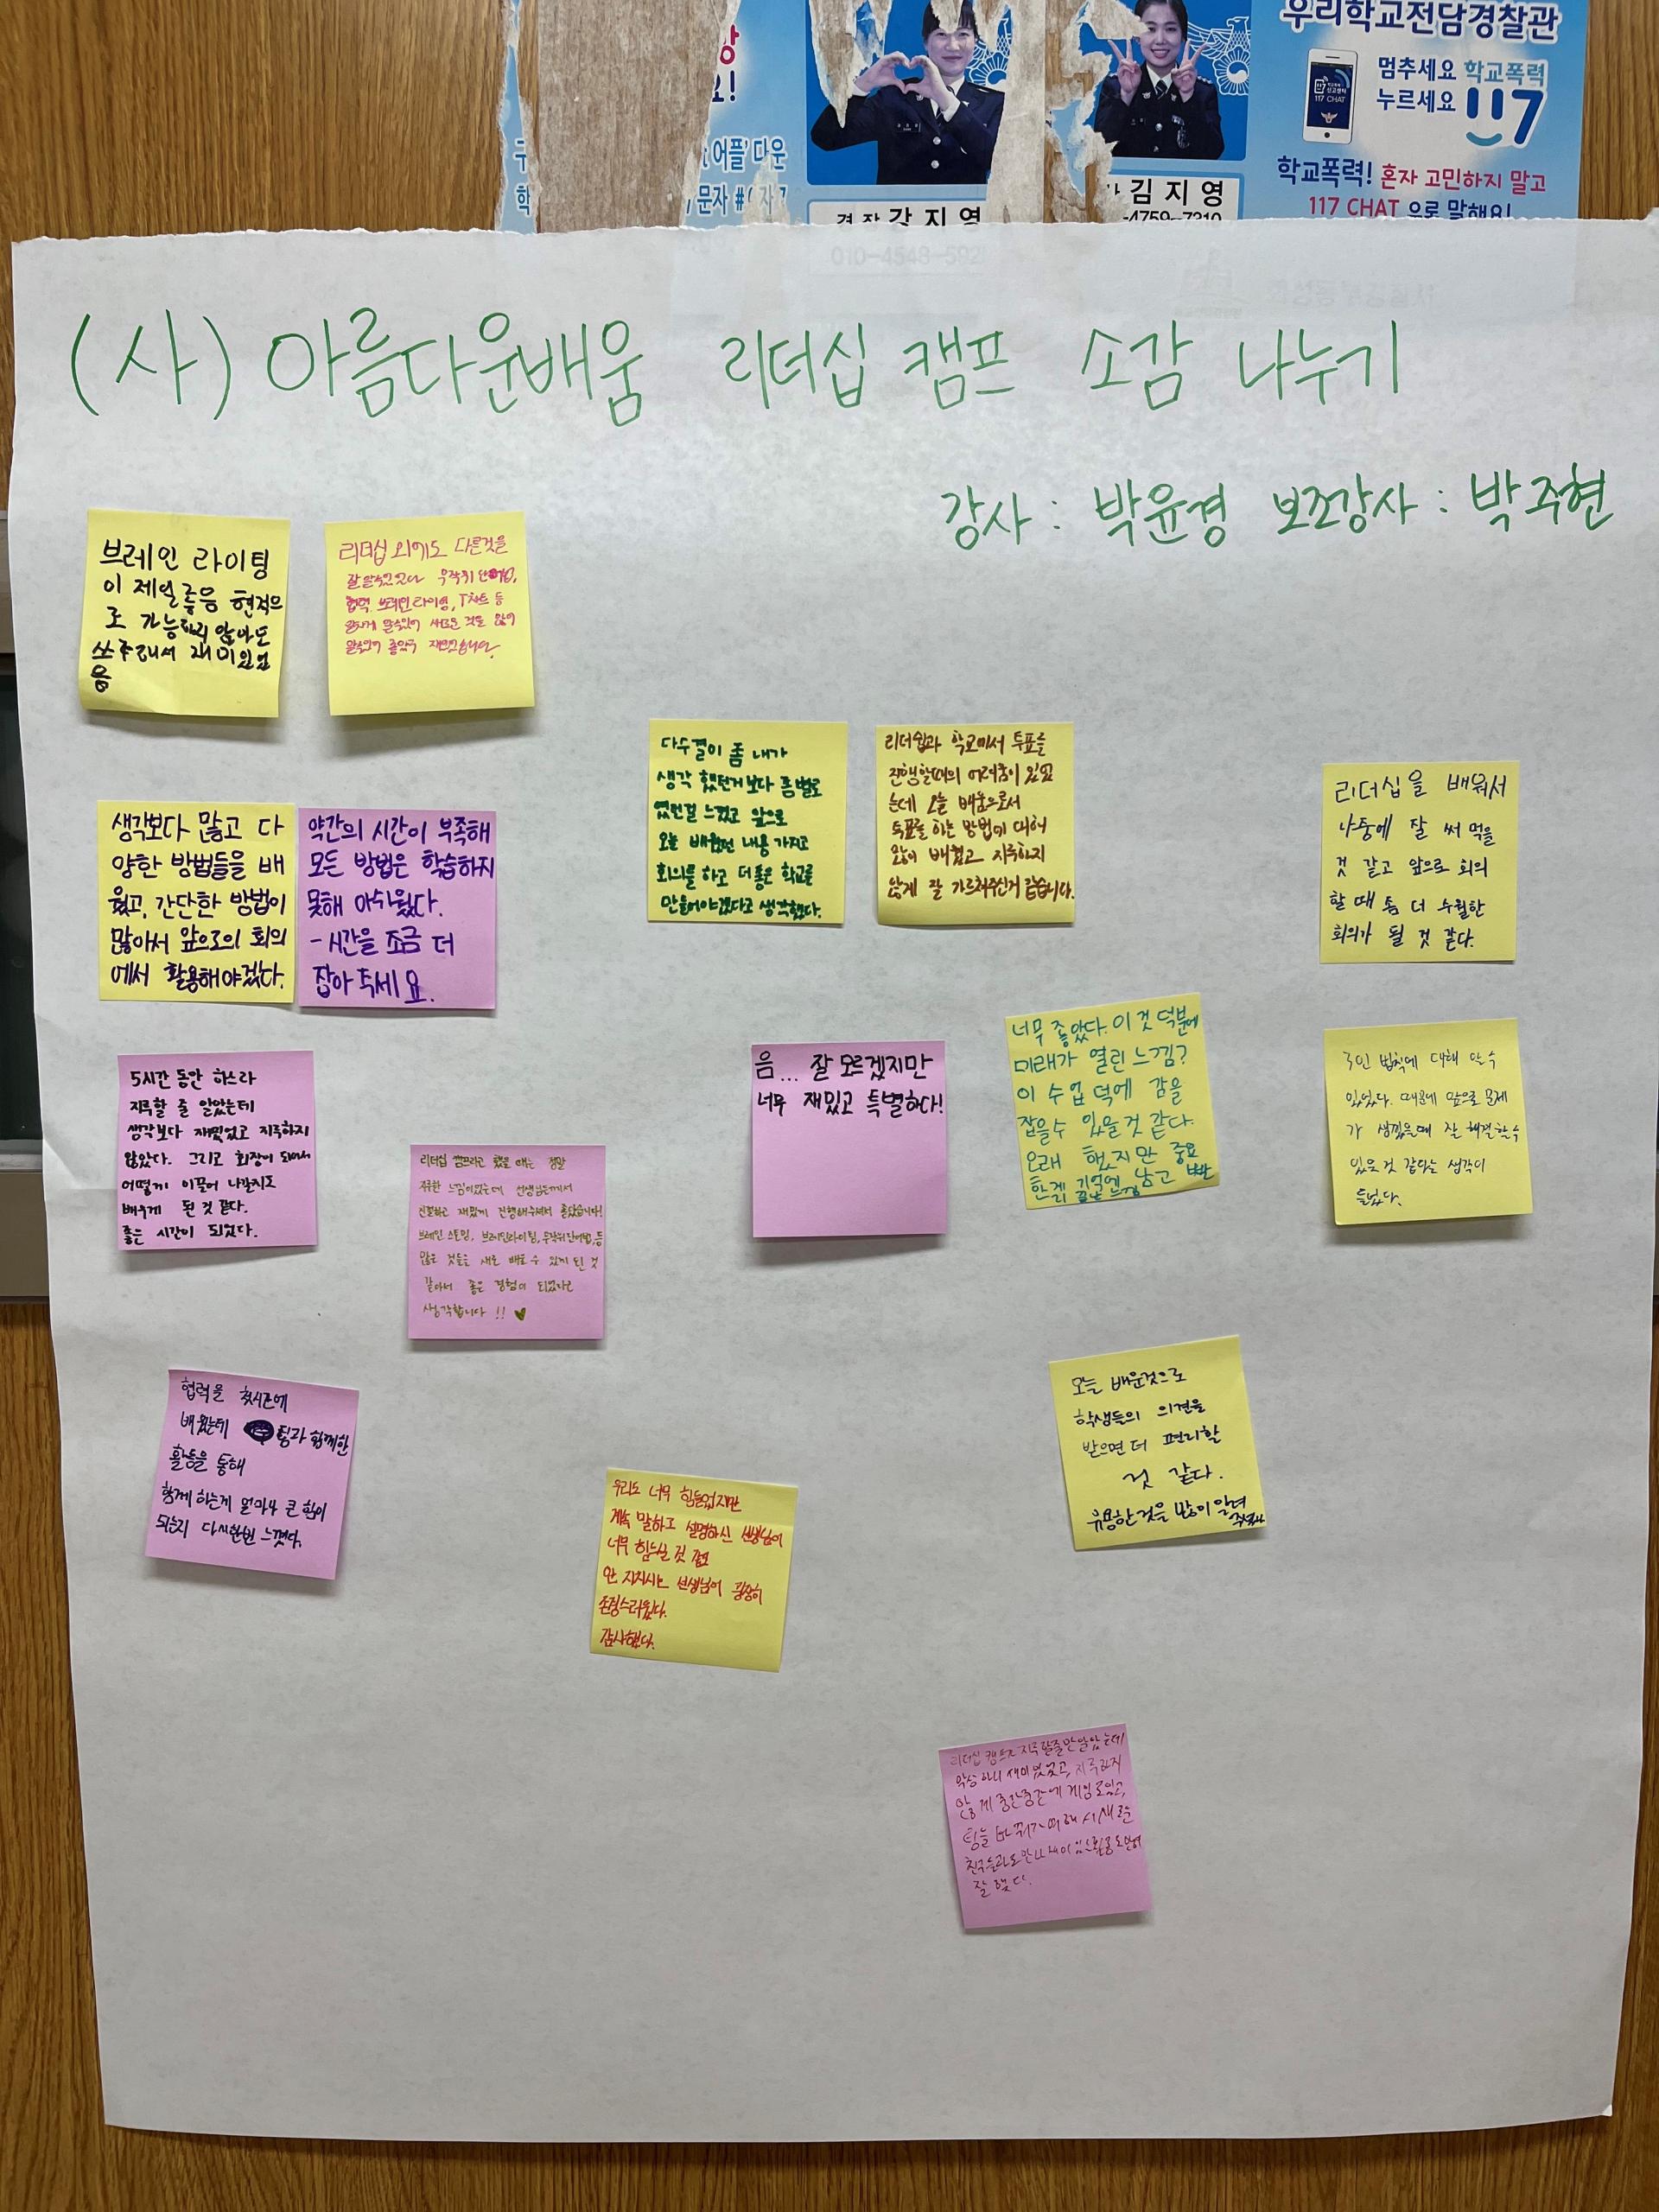 우리학교전담경찰관
멈추세요 학교폭력
누르세요 117
117 CHAT
어플' 다운
문자 #
경장 강지영
김지영
-4759-7310
학교폭력! 혼자 고민하지 말고
117 CHAT 으로 말해요!
010-4548-592
(사) 아름다운배움 리더십 캠프 소감 나누기
강사 : 박윤경 보조강사 : 박주현
브레인 라이팅
이 제일좋음 현적으
로 가능하지 않아도
쓰주래서 재미있었
음
리더십 외에도 다른것을
잘 알수있었다 무작위 단어법,
협력, 브레인라이팅, T차트 등
알수있어 새로운 것을 많이
알수있어 좋았구 재밌었습니다
생각보다 많고 다
양한 방법들을 배
웠고, 간단한 방법이
많아서 앞으로의 회의
에서 활용해야겠다.
약간의 시간이 부족해
모든 방법은 학습하지
못해 아쉬웠다.
- 시간을 조금 더
잡아주세요.
다수결이 좀 내가
생각 했던거보다 좀 별로
였던걸 느꼈고 앞으로
오늘 배웠던 내용 가지고
회의를 하고 더 좋은 학교를
만들어야겠다고 생각했다.
리더쉽과 학교에서 투표를
진행할때의 어려움이 있었
는데 오늘 배움으로서
투표를 하는 방법에 대해
많이 배웠고 지루하지
않게 잘 가르쳐주신거 같습니다.
리더십을 배워서
나중에 잘 써 먹을
것 같고 앞으로 회의
할 때 좀 더 수월한
회의가 될 것 같다.
5시간 동안 하느라
지루할 줄 알았는데
생각보다 재밌었고 지루하지
않았다. 그리고 회장이 되어서
어떻게 이끌어 나갈지도
배우게 된 것 같다.
좋은 시간이 되었다.
리더십 캠프라고 했을 때는 정말
지루한 느낌이었는데 선생님들께서
친절하고 재밌게 진행해주셔서 좋았습니다!
브레인 스토밍, 브레인라이팅, 무작위단어법, 등
많은 것들을 새로 배울 수 있게 된 것
같아서 좋은 경험이 되었다고
생각합니다 !! ♥
음... 잘 모르겠지만
너무 재밌고 특별하다!
너무 좋았다. 이것 덕분에
미래가 열린 느낌?
이 수업 덕에 감을
잡을수 있을것 같다.
오래 했지만 중요
한게 기억에 남고 빨
끝난 느낌
3인 법칙에 대해 알 수
있었다. 때문에 앞으로 문제
가 생겼을때 잘 해결할 수
있을 것 같다는 생각이
들었다.
협력을 첫시간에
배웠는데 팀과 함께한
활동을 통해
함께 하는게 얼마나 큰 힘이
되는지 다시한번 느꼈다.
우리도 너무 힘들었지만
계속 말하고 설명하신 선생님이
너무 힘드실 것 같고
안 지치시는 선생님이 굉장히
존경스러웠다.
감사했다.
오늘 배운것으로
학생들의 의견을
받으면 더 편리할
것 같다.
유용한것을 많이 알려
주셨다
리더십 캠프가 지루할줄만 알았는데
막상 하니 재미있었고, 지루하지
않게 중간중간에 게임도 있고,
팀을 바꿔가며 해서 새로운
잘 했다.